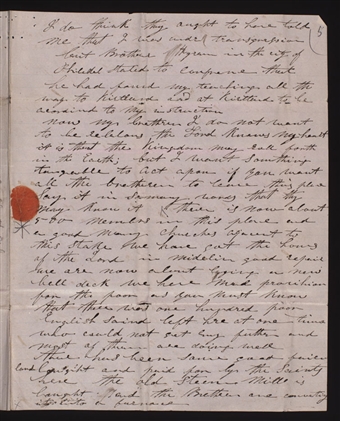 I do think they ought to have told 5
me that I was under transgression
but Brother in the city of
stated to that
he had found my teachings all the
way to Kirtland and at Kirtland to be
according to my instruction
now my brethren I do not want
to be rebelous the Lord knows my heart
it is that the kingdom may roll forth
in the Earth; but I want something
tangable to act upon if you want
all the brethren to leave this place
say it in so many words that they
may know it there is now about
members in this place and
a good many churches
this Stake we have got the house
of the Lord in midelin good repair
we are now about a new
bell deck we have made provision
for the poor as you must know
that there was one hundred poor
English Saints left here at one time
who could not get any futher and
most of them are doing well
there has been some
land and paid for by the Society
here the old Steem Mill is
bought and the Brethren are